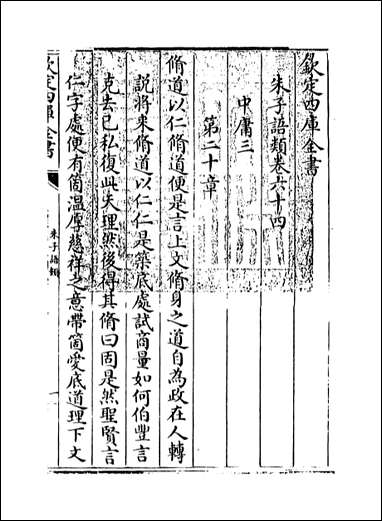 欽定四庫全書
朱子語類卷六十四
中庸三
第二十章
脩道以仁脩道便是言上文脩身之道自為政在人轉
說將来脩道以仁仁是築底處試商量如何伯豐言
克去己私復此天理然後得其脩曰固是然聖賢言
仁字處便有箇温厚慈祥之意帶箇愛底道理下文
欽定四庫全書
朱子語類
一